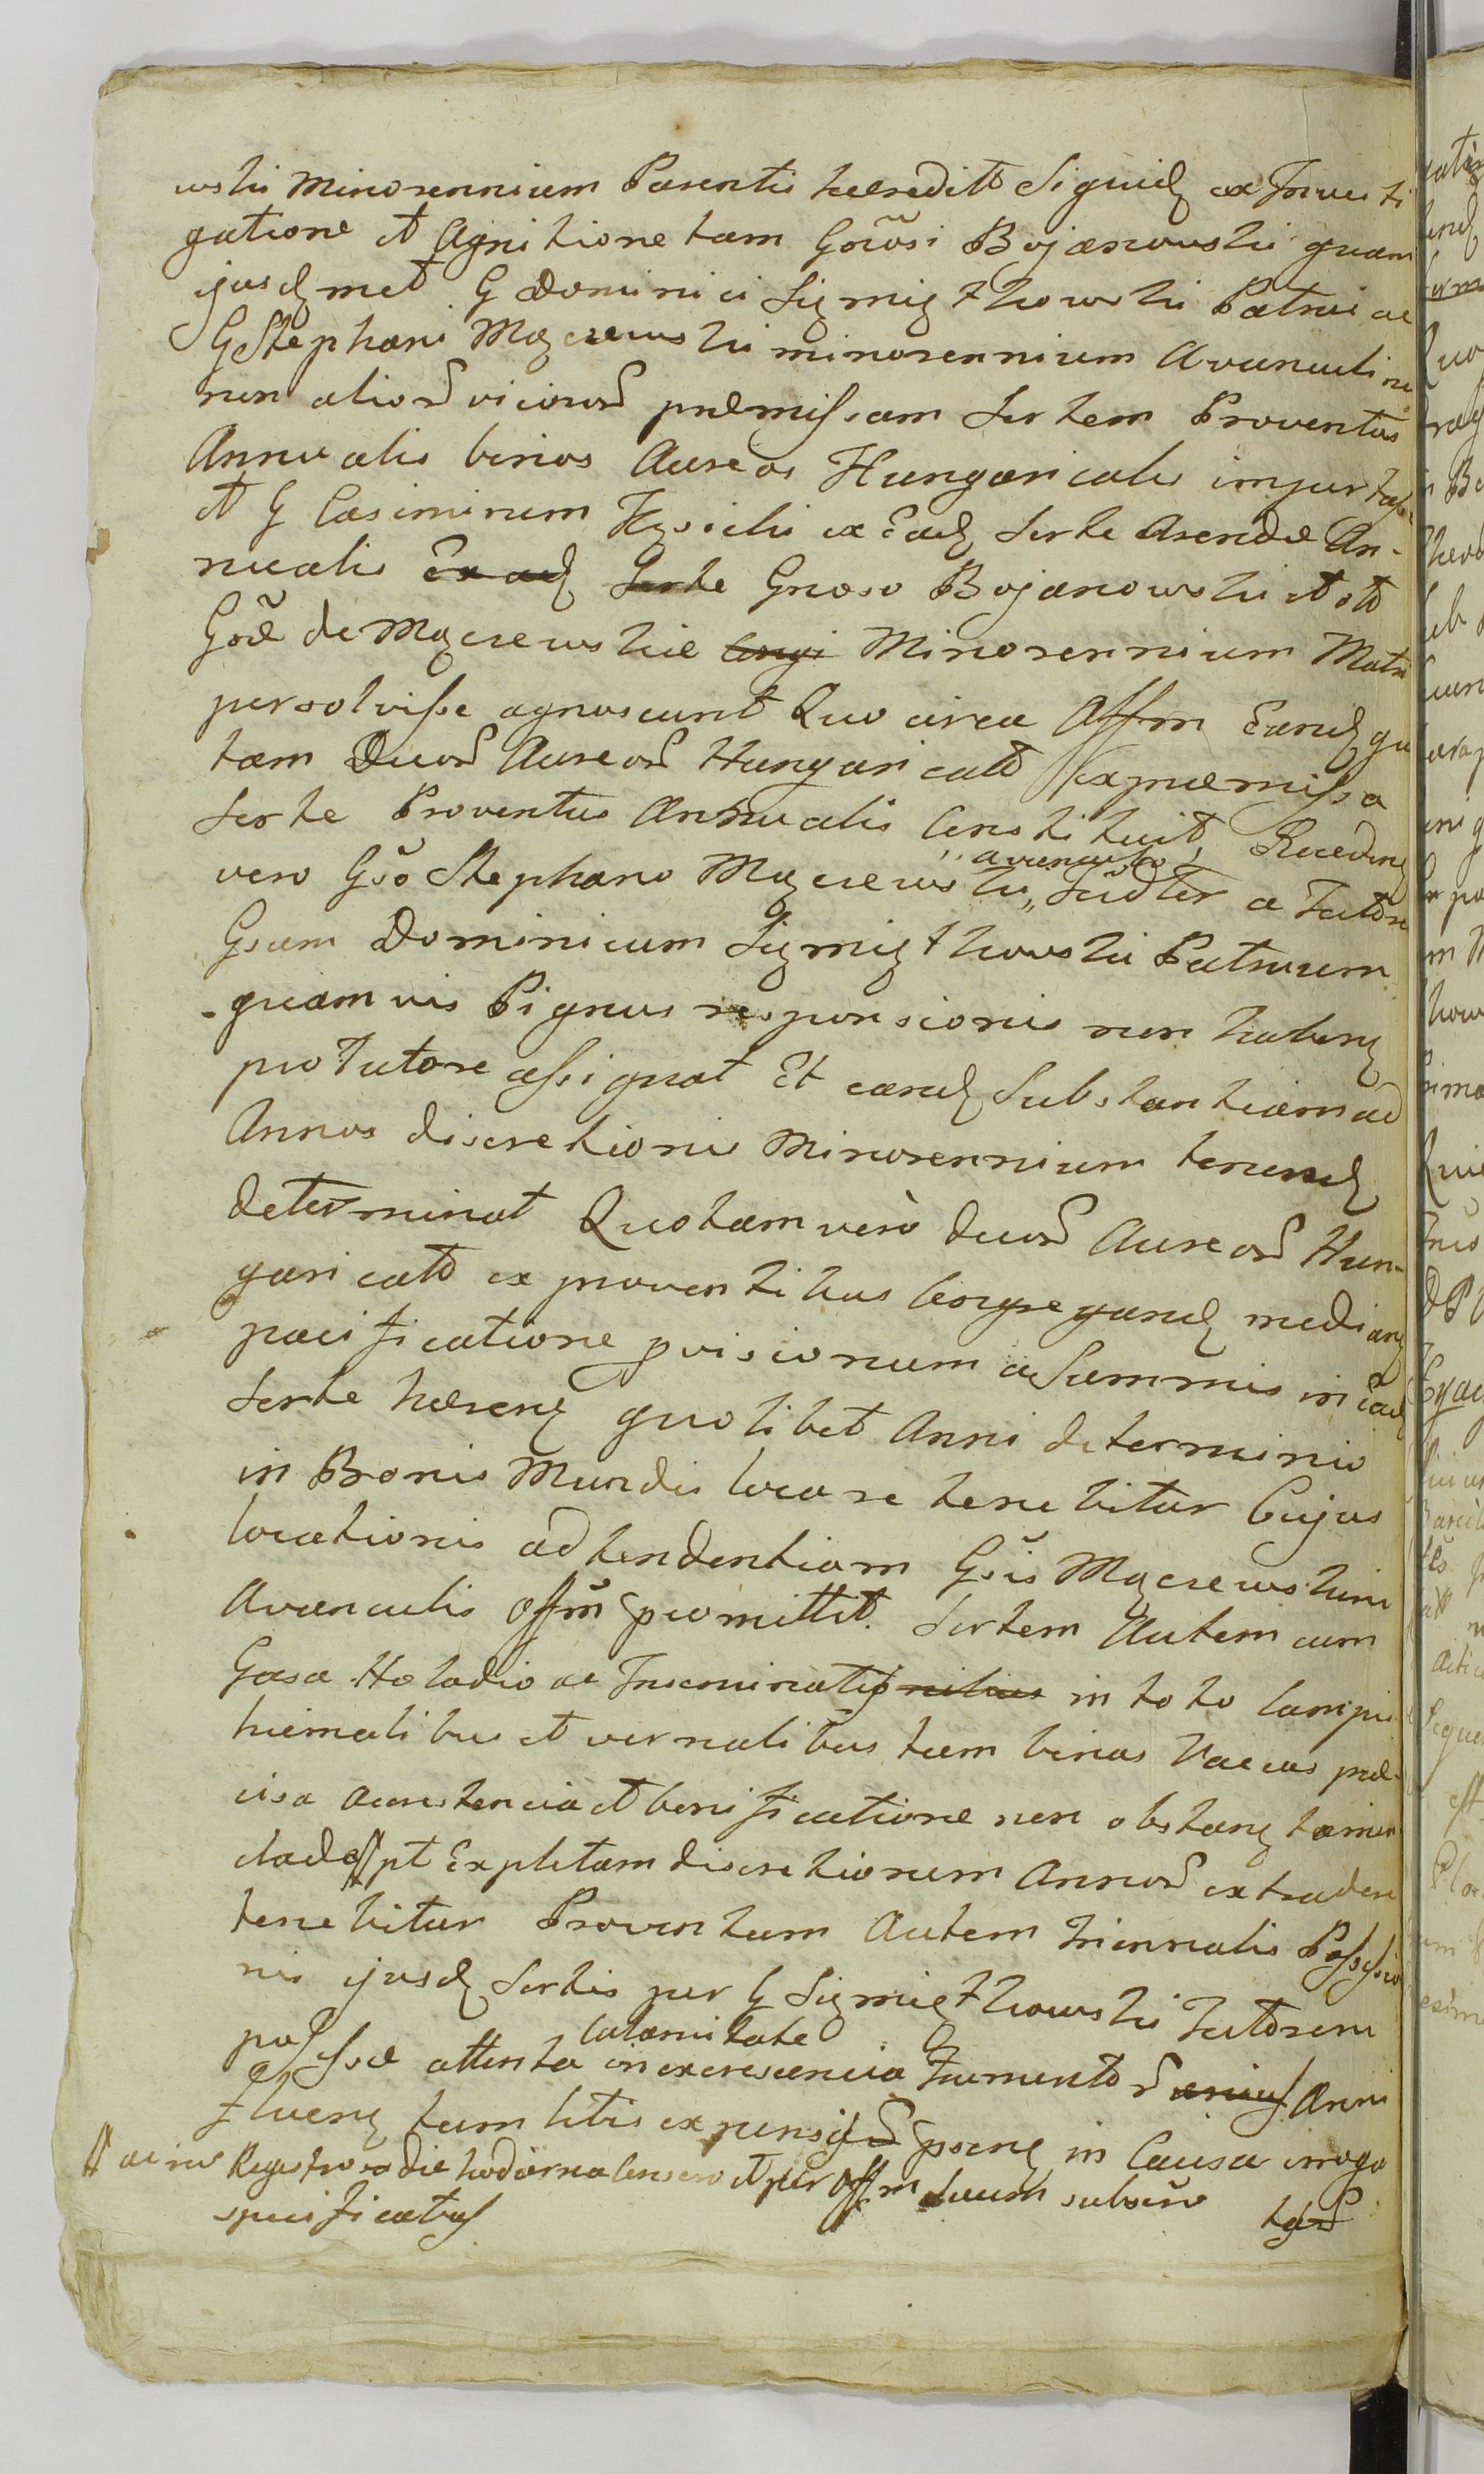 wski Minorennium Parentis haeredit Siquid ex Investi
gatione et Agnitione tam Gnosi Bojanowski quam
ejusdmet G Dominici Sizmiztkowski Patrui ac
G Stephani Mazciewski minorennium Avunculi ne
non aliord viciord praemissam Sortem Proventus
Annualis binos Aureos Hungaricales importasse
et G Casimirum Kysielis ex Ead Sorte Arendae An-
nualis Exead Sorte Gnoso Bojanowski et ott
Gsae de Mazciewskie Conju Minorennium Matri
persolvisse agnoscunt Quo circa Offm Eand quo
tam Duord Aureord Hungaricatt ex praemissa
Sorte Proventus Annualis Constituit, Recedend
vero Gso Stephano Mazciewski „avunculo„ Judter a Tutore
Gsum Dominicum Sizmiztkowski Patruum
quamvis Pignus responsionis non habend
pro Tutore assignat Et eand Substantiam ad
Annos discretionis Minorennium tenend
determinat Quotam vero duord Aureord Hun-
garicatt ex proventibus Congregand mediand
pacificatione pvisionum a Summis in ead
Sorte haerend quolibet Anni determinio
in Bonis Mundis locare tenebitur Cujus
locationis ad tendentiam Gsis Mazciewskim
Avunculis offm promittit. Sortem Autem cum
Gasa Holadio ac Inseminationibus in toto Campis
hiemalibus et vernalibus tam binas Vaccas prae-
cisa accrestencia et bonificatione non obstand tamen
clade ff pt Expletam discretionum Annord extradere
tenebitur Proventum Autem triennalis Possessio
nis ejusd Sortis per G Sizmiztkowski Tutorem
calamitate
possessae attenta in excrescencia Frumentord Anni
fluend tum litis expensis poend in Causa irroga
tard
ff ac in Registro sodie hodierna Censero et per Offm suum subscro
specificatus